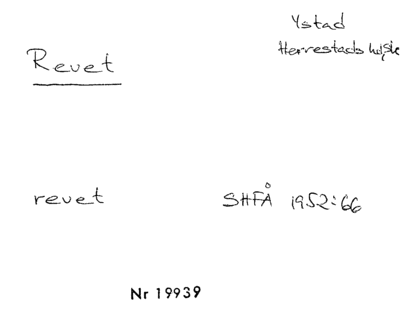 Ystad
Herrestads hd, Sk
Revet
revet SHFÅ 1952:66
Nr 19939